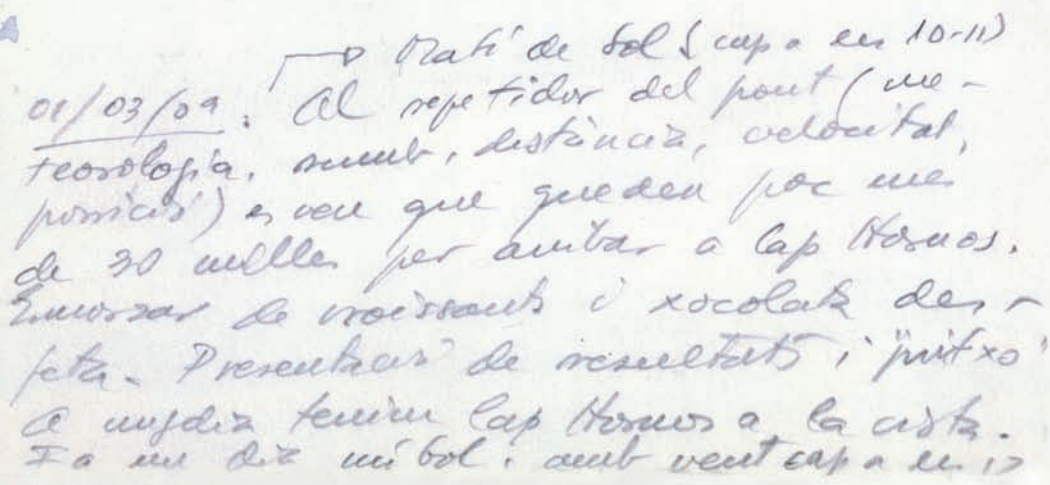 → Matí de Sol (cap a les 10-11)
01/03/09. Al repetidor del pont (me-
teorologia, rumb, distància, velocitat,
posició) es veu que queden poc més
de 30 milles per arribar a Cap Hornos.
Esmorzar de croissants i xocolata des-
feta. Presentació de resultats i "pitxo"
A migdia tenim Cap Hornos a la vista.
Fa un dia núbol, amb vent cap a les